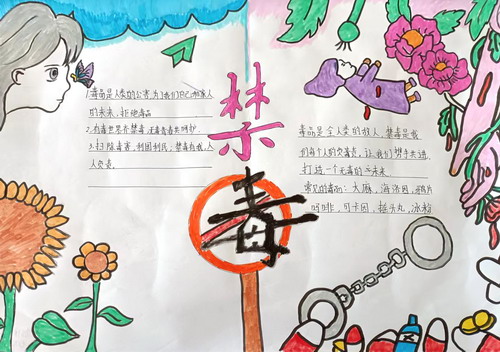 禁
毒
1.毒品是人类的公害,为了我们自己和家人
的未来,拒绝毒品
2.有毒世界你禁毒,
3.扫除毒害,利国利民;禁毒有我,人
人负责。
毒品是全人类的敌人,禁毒是我
们每个人的负责,让我们携手共进
打造一个无毒的未来
常见的毒品:大麻,海洛因,鸦片
吗啡,可卡因,摇头丸,冰粉